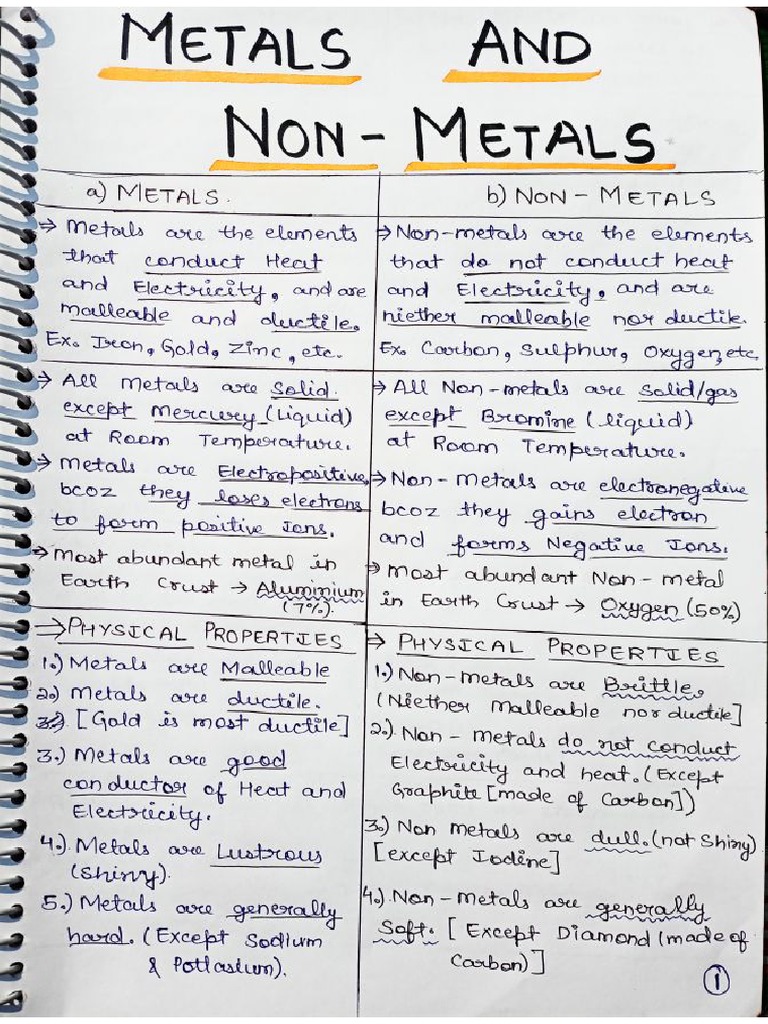 METALS AND
NON-METALS
a) METALS.
→ Metals are the elements
that conduct Heat
and Electricity, and are
malleable and ductile.
Ex. Iron, Gold, Zinc, etc.
→ All Metals are Solid
except Mercury (Liquid)
at Room Temperature.
→ Metals are Electropositive,
bcoz they loses electrons
to form positive Ions.
→ Most abundant metal in
Earth Crust → Aluminium
(7%).
⇒ PHYSICAL PROPERTIES
1.) Metals are Malleable
2.) Metals are ductile.
[Gold is most ductile]
3.) Metals are good
conductor of Heat and
Electricity.
4.) Metals are Lustrous
(Shiny).
5.) Metals are generally
hard. (Except Sodium
& Pottasium).
b) NON-METALS
→ Non-metals are the elements
that do not conduct heat
and Electricity, and are
niether malleable nor ductile.
Ex. Carbon, Sulphur, Oxygen, etc
→ All Non-metals are Solid/gas
except Bromine (liquid)
at Room Temperature.
→ Non-Metals are electronegative
bcoz they gains electron
and forms Negative Ions.
→ Most abundant Non-metal
in Earth Crust → Oxygen (50%)
⇒ PHYSICAL PROPERTIES
1.) Non-metals are Brittle.
(Niether Malleable nor ductile]
2.) Non-metals do not conduct
Electricity and heat. (Except
Graphite [made of Carbon])
3.) Non metals are dull. (not Shiny)
[except Iodine]
4.) Non-metals are generally
Soft. [Except Diamond (made of
Carbon)]
1